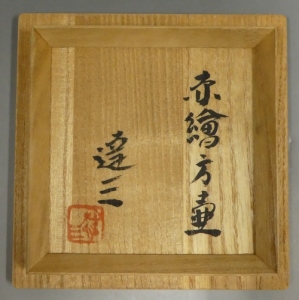 赤繪方壷
達三